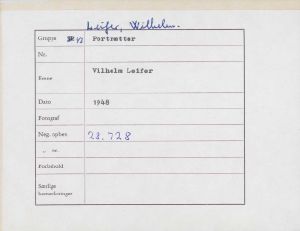 Leifer, Wilhelm.
Gruppe Portrætter
Nr.
Emne Vilhelm Leifer
Dato 1948
Fotograf
Neg. opbev. 28.728
„ nr.
Forbehold
Særlige
bemærkninger